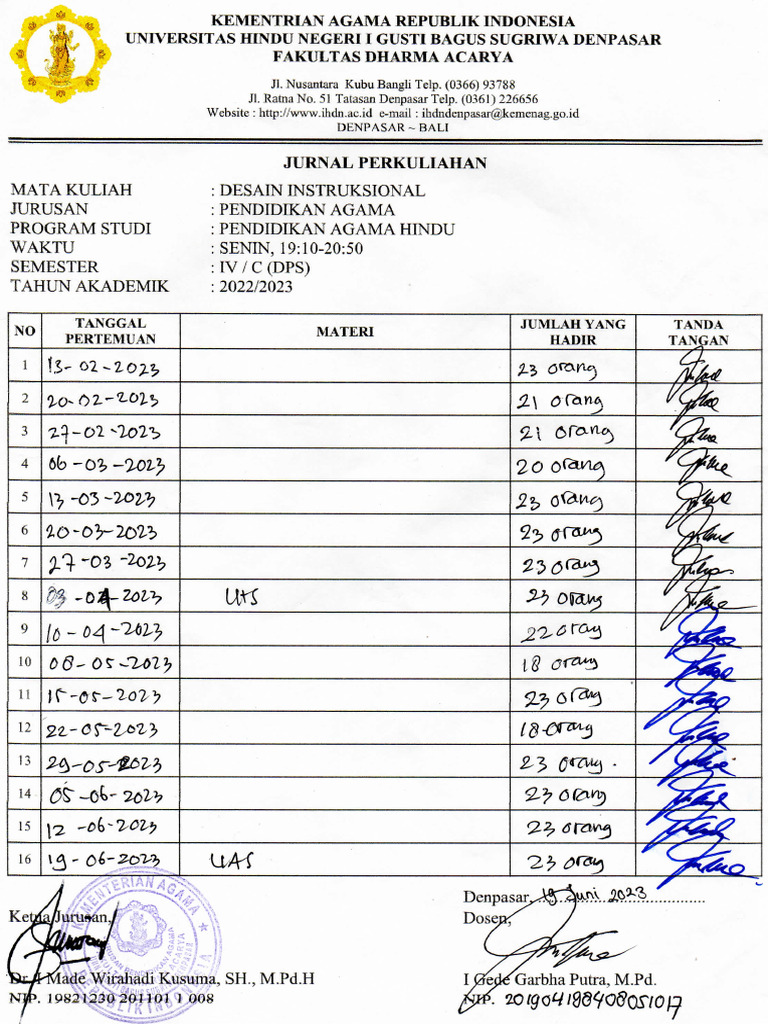 KEMENTRIAN AGAMA REPUBLIK INDONESIA
UNIVERSITAS HINDU NEGERI I GUSTI BAGUS SUGRIWA DENPASAR
FAKULTAS DHARMA ACARYA
Jl. Nusantara Kubu Bangli Telp. (0366) 93788
Jl. Ratna No. 51 Tatasan Denpasar Telp. (0361) 226656
Website : http://www.ihdn.ac.id e-mail : ihdndenpasar@kemenag.go.id
DENPASAR ~ BALI
JURNAL PERKULIAHAN
MATA KULIAH : DESAIN INSTRUKSIONAL
JURUSAN : PENDIDIKAN AGAMA
PROGRAM STUDI : PENDIDIKAN AGAMA HINDU
WAKTU : SENIN, 19:10-20:50
SEMESTER : IV / C (DPS)
TAHUN AKADEMIK : 2022/2023
NO TANGGAL PERTEMUAN MATERI JUMLAH YANG HADIR TANDA TANGAN
1 13-02-2023 23 orang
2 20-02-2023 21 orang
3 27-02-2023 21 orang
4 06-03-2023 20 orang
5 13-03-2023 23 orang
6 20-03-2023 23 orang
7 27-03-2023 23 orang
8 03-04-2023 UTS 23 orang
9 10-04-2023 22 orang
10 08-05-2023 18 orang
11 15-05-2023 23 orang
12 22-05-2023 18 orang
13 29-05-2023 23 orang.
14 05-06-2023 23 orang
15 12-06-2023 23 orang
16 19-06-2023 UAS 23 orang
Denpasar, 19 Juni 2023
Ketua Jurusan, Dosen,
KEMENTERIAN AGAMA
REPUBLIK INDONESIA
Dr. I Made Wirahadi Kusuma, SH., M.Pd.H I Gede Garbha Putra, M.Pd.
NIP. 19821230 201101 1 008 NIP. 201904198408051017